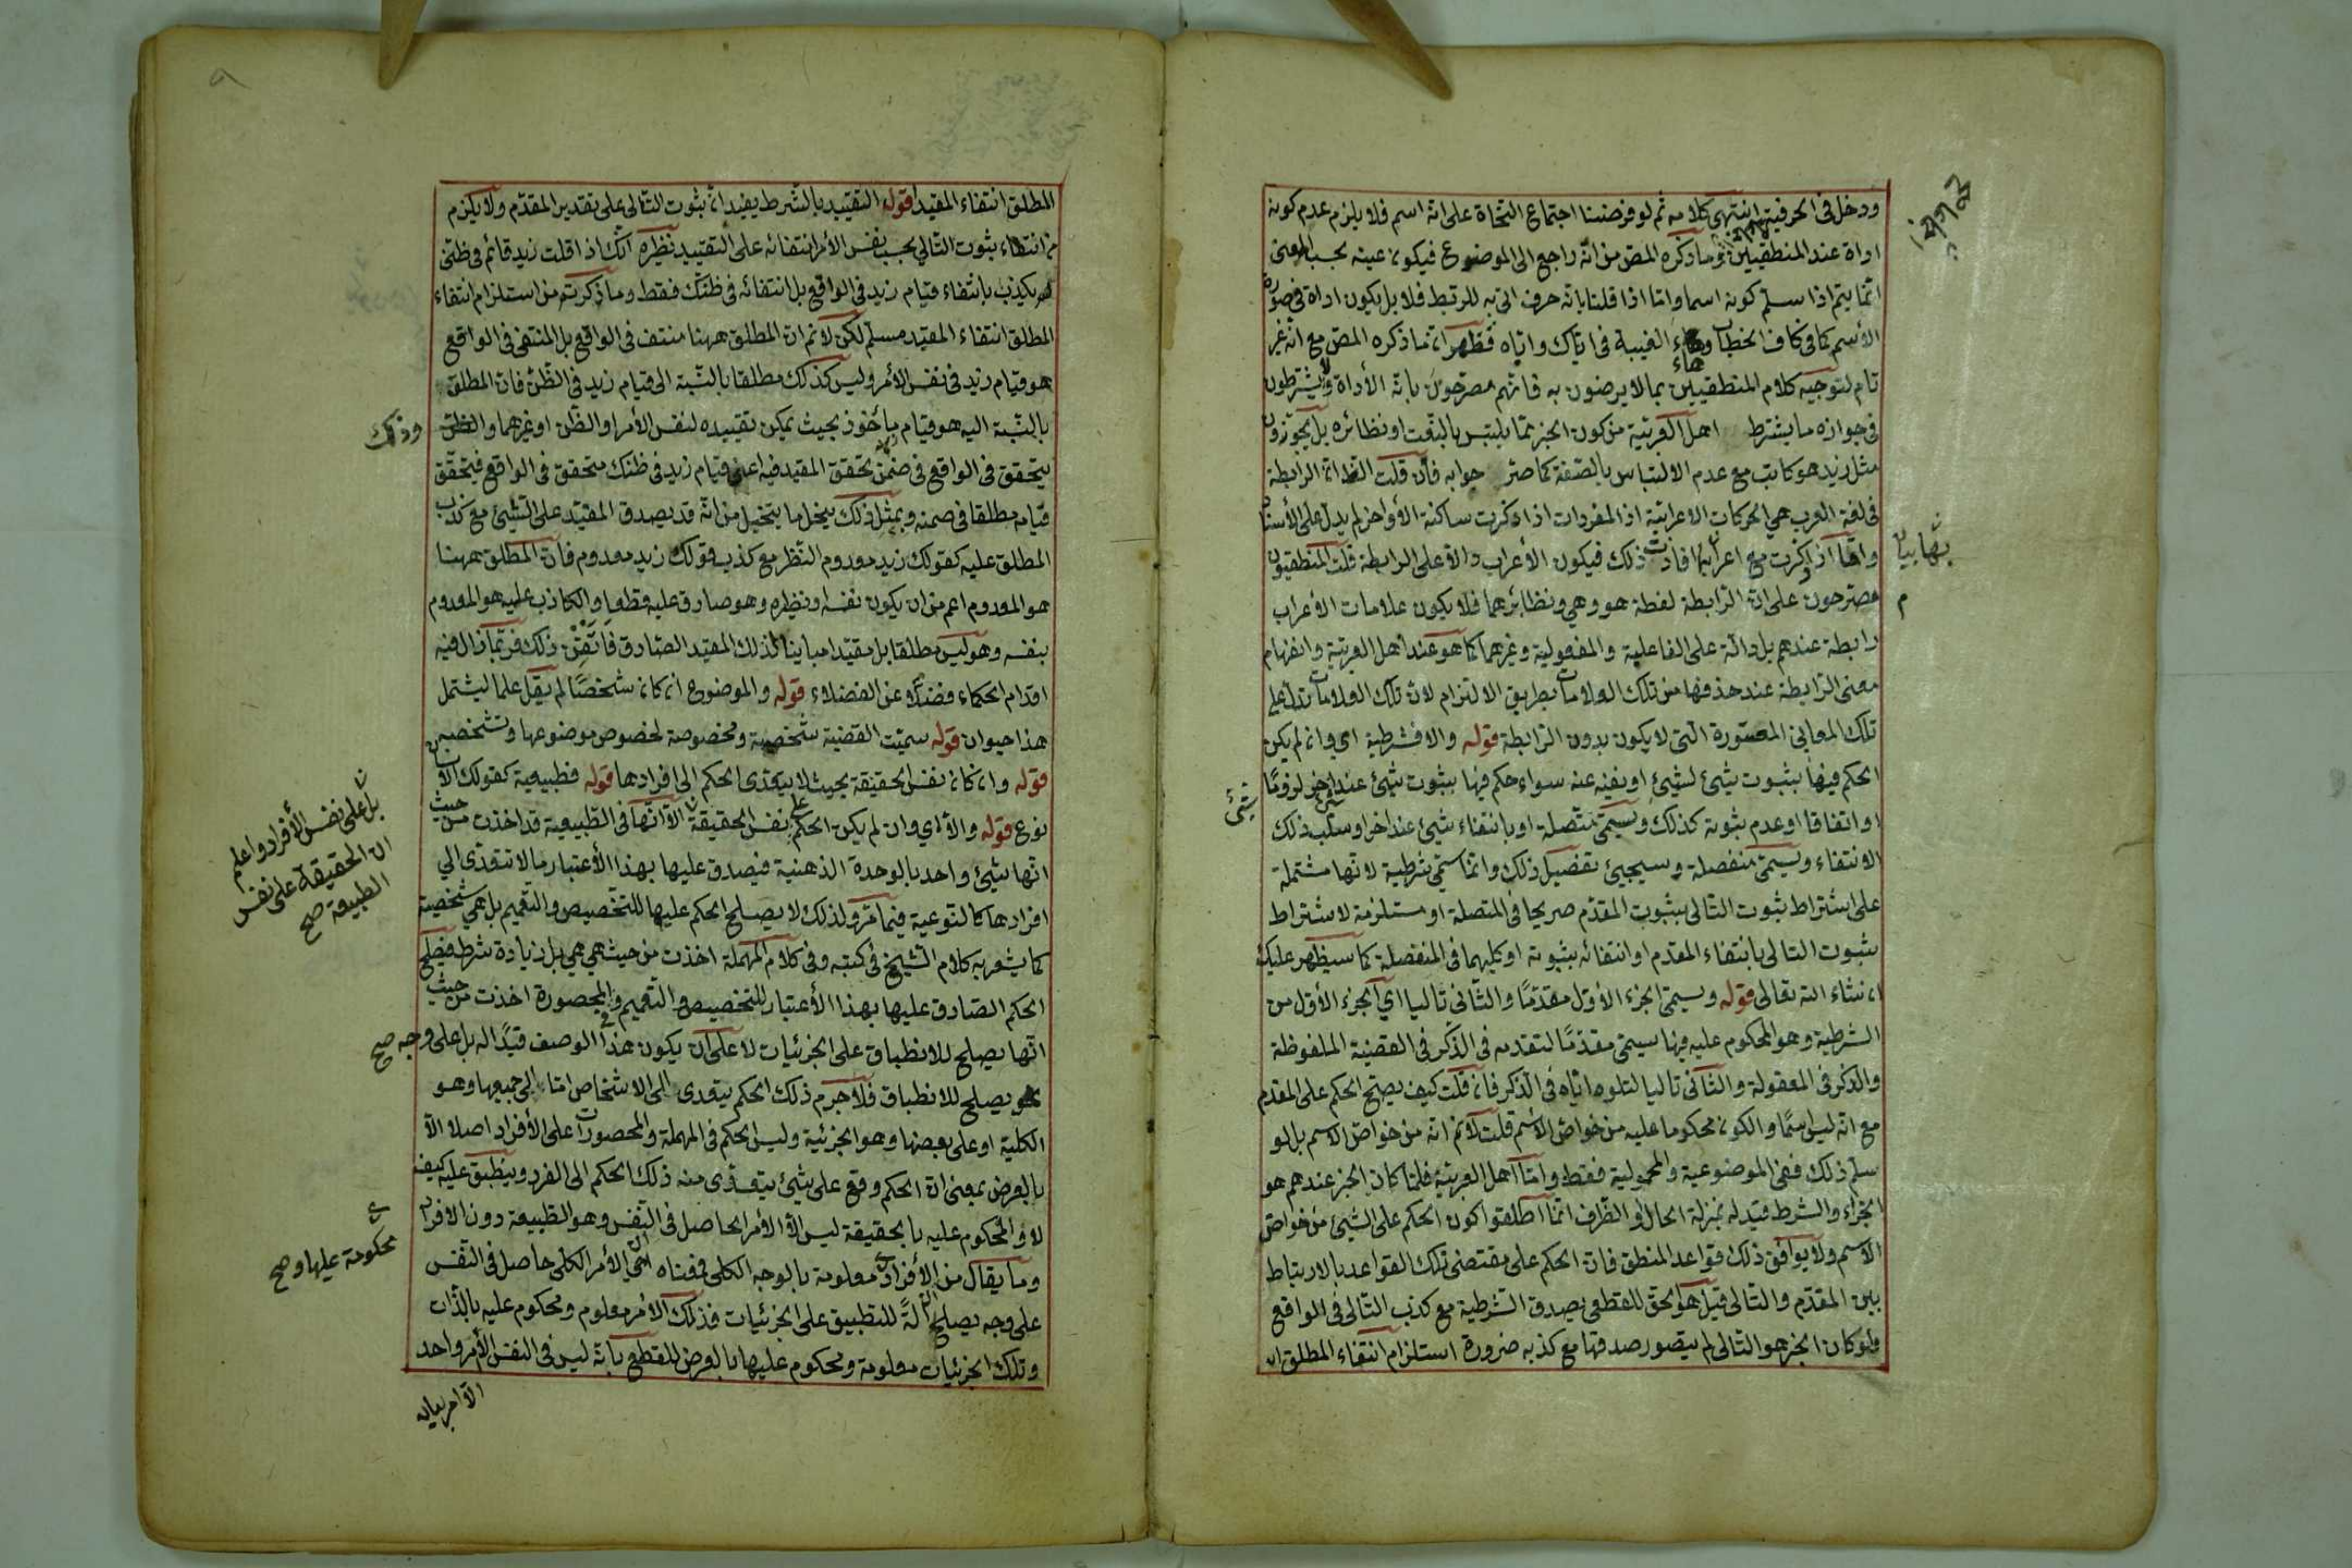 ودخل في الحرفية انتهى كلامه ثم لو فرضنا اجتماع النحاة على انه اسم فلا يلزم عدم كونه
اداة عند المنطقيين وما ذكره المص من انه راجع الى الموضوع فيكون عينه بحسب المعنى
انما يتم اذا سلم كونه اسما واما اذا قلنا بانه حرف اتى به للربط فلا بل يكون اداة في صورة
الاسم كما في كاف الخطاب وهاء الغيبة في اياك واياه فظهر ان ما ذكره المص مع انه غير
تام لتوجيه كلام المنطقيين بما لا يرضون به فانهم مصرحون بانه الأداة ولا يشترطون
في جوازه ما يشترط اهل العربية من كون الخبر مما يلتبس بالنعت او نظائره بل يجوزون
مثل زيد هو كاتب مع عدم الالتباس بالصفة كما صر جوابه فان قلت الظ ان الرابطة
في لغة العرب هي الحركات الاعرابية اذ المفردات اذا ذكرت ساكنة الأواخر لم يدل على الأسناد
واما اذا ذكرت مع اعرابها افادت ذلك فيكون الأعراب دالا على الرابطة قلت المنطقيون
مصرحون على ان الرابطة لفظة هو وهي ونظائرهما فلا يكون علامات الأعراب
رابطة عندهم بل دالة على الفاعلية والمفعولية وغيرهما كما هو عند اهل العربية وانفهام
معنى الرابطة عند حذفها من تلك العلامات بطريق الالتزام لان تلك العلامات تدل على
تلك المعاني المعتورة التي لا يكون بدون الرابطة قوله والا فشرطية اي وان لم يكن
الحكم فيها بثبوت شيئ لشيئ او نفيه عنه سواء حكم فيها بثبوت شيئ عند اخر لزوما
او اتفاقا او عدم ثبوته كذلك ويسمى متصلة او بانتفاء شيئ عند اخر او سلب ذلك
الانتفاء ويسمى منفصلة وسيجيئ تفصيل ذلك وانما سمي شرطية لانها مشتملة
على اشتراط ثبوت التالى بثبوت المقدم صريحا في المتصلة او مستلزمة لاشتراط
ثبوت التالى بانتفاء المقدم او انتفائه بثبوته او كليهما في المنفصلة كما سيظهر عليك
ان شاء الله تعالى قوله ويسمى الجزء الأول مقدما والثاني تاليا اي الجزء الأول من
الشرطية وهو المحكوم عليه فيها سيمى مقدما لتقدمه في الذكر في القضية الملفوظة
والذكر في المعقولة والثاني تاليا لتلوه اياه في الذكر فان قلت كيف يصح الحكم على المقدم
مع انه ليس اسما والكون محكوما عليه من خواص الأسم قلت لا نم انه من خواص الاسم بل لو
سلم ذلك ففي الموضوعية والمحمولية فقط واما اهل العربية فلما كان الخبر عندهم هو
الجزاء والشرط قيد له بمنزلة الحال او الظرف انما اطلقوا كون الحكم على الشيئ من خواص
الاسم ولا يوافق ذلك قواعد المنطق فان الحكم على مقتضى تلك القواعد بالارتباط
بين المقدم والتالى قيل هو الحق للقطعى يصدق الشرطية مع كذب التالى في الواقع
ولو كان الخبر هو التالى لم يتصور صدقها مع كذبه ضرورة استلزام انتفاء المطلق
بها بيان
شيئ
المطلق انتفاء المقيد قوله التقييد بالشرط يفيد ان ثبوت التالى على تقدير المقدم ولا يلزم
من انتفاء ثبوت التالي بحسب نفس الأمر انتفائه على التقييد نظيره انك اذا قلت زيد قائم في ظنى
لم يكذب بانتفاء قيام زيد في الواقع بل انتفائه في ظنك فقط وما ذكرتم من استلزام انتفاء
المطلق انتفاء المقيد مسلم لكن لا نم ان المطلق ههنا منتف في الواقع بل المنتفى في الواقع
هو قيام زيد في نفس الأمر وليس كذلك مطلقا بالنسبة الى قيام زيد في الظن فان المطلق
بالنسبة اليه هو قيام مأخوذ بحيث يمكن تقييده لنفس الأمر او الظن او غيرهما
وذلك
يتحقق في الواقع في ضمن تحقق المقيد فيه اعنى قيام زيد في ظنك متحقق في الواقع فيتحقق
قيام مطلقا في ضمنه وبمثل ذلك ينحل ما يتخيل من انه قد يصدق المقيد على الشيئ مع كذب
المطلق عليه كقولك زيد معدوم النظر مع كذب قولك زيد معدوم فان المطلق ههنا
هو المعدوم اعم من ان يكون نفسه او نظيره وهو صادق عليه قطعا والكاذب عليه هو المعدوم
بنفسه وهو ليس مطلقا بل مقيدا مباينا لذلك المقيد الصادق فاتقن ذلك فربما زال فيه
اقدام الحكماء فضلا عن الفضلاء قوله والموضوع ان كان شخصا لم يقل علما ليشتمل
هذا حيوان قوله سميت القضية شخصية ومخصوصة لخصوص موضوعها وتشخصه
قوله وان كان نفس الحقيقة بحيث لا يتعدى الحكم الى افرادها قوله فطبيعية كقولك الانسان
نوع قوله والا اي وان لم يكن الحكم على نفس الحقيقة الا انها في الطبيعية قد اخذت من حيث
بل على نفس الأفراد واعلم
ان الحقيقة على نفس
الطبيعة صح
انها شيئ واحد بالوحدة الذهنية فيصدق عليها بهذا الأعتبار ما لا تتعدى الى
افرادها كالنوعية فيما مر ولذلك لا يصلح الحكم عليها للتخصيص والتعميم بل هي شخصية
كما يشعر به كلام الشيخ في كتبه وفي كلام المهملة اخذت من حيث هي هي بل زيادة شرط فيصلح
الحكم الصادق عليها بهذا الأعتبار للتخصيص والتعميم وفي المحصورة اخذت من حيث
انها يصلح للانطباق على الجزئيات لا على ان يكون هذا الوصف قيدا له بل على وجه صح
يصلح للانطباق فلا جرم ذلك الحكم يتعدى الى الاشخاص اما الى جميعها وهو
الكلية او على بعضها وهو الجزئية وليس الحكم في المهملة والمحصورات على الأفراد اصلا الا
بالعرض بمعنى ان الحكم وقع على شيئ يتعدى منه ذلك الحكم الى الفرد وينطبق عليه كيف
لا والمحكوم عليه بالحقيقة ليس الا الأمر الحاصل في النفس وهو الطبيعة دون الافراد
وما يقال من ان الأفراد معلومة بالوجه الكلى فمعناه ان الأمر الكلى حاصل في النفس
محكومة عليها وصح
على وجه يصلح آلة للتطبيق على الجزئيات فذلك الأمر معلوم ومحكوم عليه بالذات
وتلك الجزئيات معلومة ومحكوم عليها بالعرض للقطع بانه ليس في النفس الأمر واحد